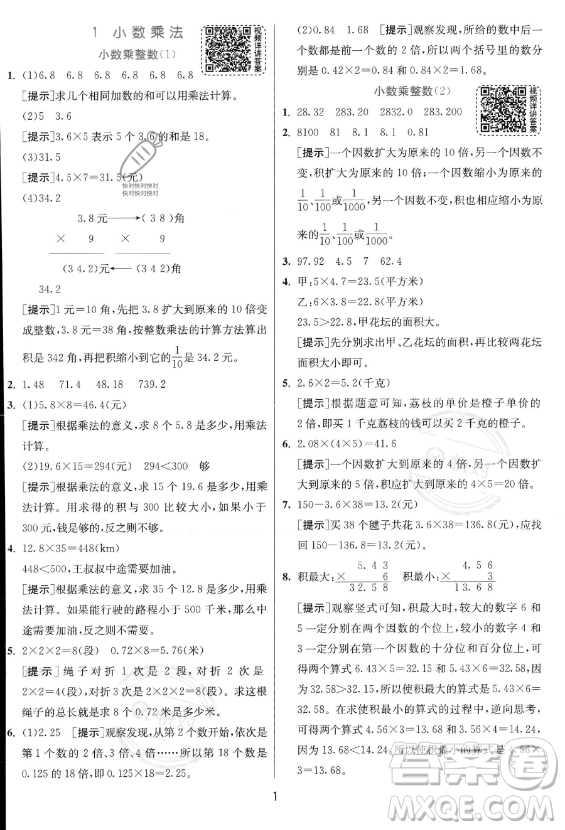 1 小数乘法
小数乘整数(1)
视频详讲答案
1. (1)6.8 6.8 6.8 6.8 6.8
[提示]求几个相同加数的和可以用乘法计算。
(2)5 3.6
[提示]3.6×5 表示 5 个 3.6 的和是 18。
(3)31.5
[提示]4.5×7=31.5(元)
快对快对快对
快对快对快对
(4)34.2
3.8 元 (3 8)角
× 9 × 9
(3 4.2)元 (3 4 2)角
[提示]1 元=10 角,把 3.8 扩大到原来的 10 倍变
成整数,3.8 元=38 角,按整数乘法的计算方法算出
积是 342 角,再把积缩小到它的1/10是 34.2 元。
2. 1.48 71.4 48.18 739.2
3. (1)5.8×8=46.4(元)
[提示]根据乘法的意义,求 8 个 5.8 是多少,用乘法
计算。
(2)19.6×15=294(元) 294<300 够
[提示]根据乘法的意义,求 15 个 19.6 是多少,用乘
法计算。如果所得的积大于 300 元,钱不够;如果小于
300 元,钱够了,还有剩余。
4. 12.8×35=448(km)
448<500,王叔叔中途需要加油。
[提示]根据乘法的意义,求 35 个 12.8 是多少,用乘法
计算。如果能行驶的路程小于 500 千米,那么中途需
要加油。
5. 2×2×2=8(段) 0.72×8=5.76(米)
[提示]绳子对折 1 次是 2 段,对折 2 次是
2×2=4(段),对折 3 次是 2×2×2=8(段)。求这根
绳子的总长,就是求 8 个 0.72 米是多少米。
6. (1)2.25 [提示]观察发现,从第 2 个数开始,依次是
第 1 个数的 2 倍、3 倍……所以第 18 个数是
0.125 的 18 倍,即 0.125×18=2.25。
(2)0.84 1.68 [提示]观察发现,所给的数中后一个
数都是前一个数的 2 倍,所以两个括号里的数分别
是 0.42×2=0.84,0.84×2=1.68。
小数乘整数(2)
视频详讲答案
1. 28.32 283.20 2832.0 283.200
2. 8100 81 8.1 8.1 0.81
[提示]一个因数扩大为原来的 10 倍,另一个因数缩小为原
来的1/10、1/100或1/1000,另一个因数不变,积也相应缩小为原
来的1/10、1/100或1/1000。
3. 97.92 4.5 7 62.4
4. 甲:5×4.7=23.5(平方米)
乙:6×3.8=22.8(平方米)
23.5>22.8,甲花坛的面积大。
[提示]先分别求出甲、乙花坛的面积,再比较两个面
积大小即可。
5. 2.6×2=5.2(千克)
[提示]根据题意可知,荔枝的单价是橙子单价的
2 倍,即买 1 千克荔枝的钱可以买 2 千克的橙子。
6. 2.08×(4×5)=41.6
[提示]一个因数扩大到原来的 4 倍,另一个因数扩
大到原来的 5 倍,则积扩大到原来的 4×5=20 倍。
7. 150-3.6×38=13.2(元)
[提示]买 38 个毽子共花 3.6×38=136.8(元),应找
回 150-136.8=13.2(元)。
8. 积最大: 5.4 3 积最小: 4.5 6
× 6 × 3
3 2.5 8 1 3.6 8
[提示]观察竖式可知,积最大时,较大的数字 6 和
5 一定分别在两个因数的个位上,较小的数字 4 和
3 一定分别在第一个因数的十分位和百分位上,而
6.43×5=32.15,5.43×6=32.58,32.58>32.15,所
以使积最大的算式是 5.43×6=32.58。
求积最小的算式时可使用上述方法的逆向思考,可
得 4.56×3=13.68,3.56×4=14.24,
因为 13.68<14.24,所以使积最小的算式是 4.56×3
=13.68。
1
作业帮答案
www.mxqe.com